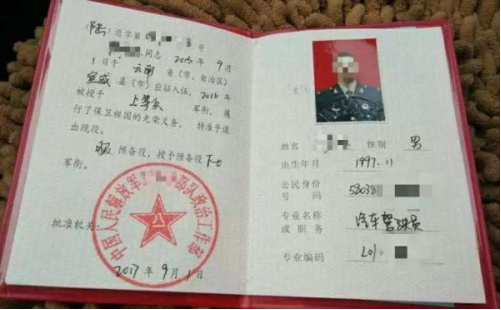 陆 退字第 号
同志 2015年9月
1日于 云南 省（市、自治区）
宣威 县（市）应征入伍，2016
被授予 上等兵 军衔，履
行了保卫祖国的光荣义务，特准予退
出现役。
服 预备役，授予预备役 下士
军衔。
中国人民解放军 部队政治工作部
八一
批准机关：
2017年9月1日
姓名 性别 男
出生年月 1997.11
公民身份
号码
专业名称
或职务 汽车驾驶员
专业编码